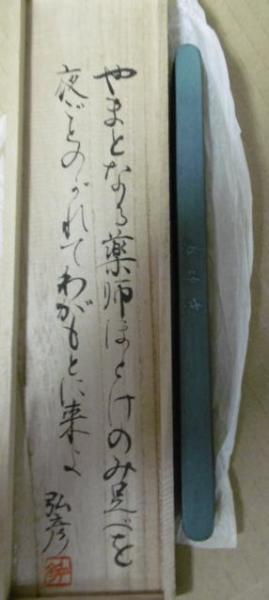 やまとなる薬師ほとけのみ足べを
夜ごとのがれてわがもとに来よ
弘彦